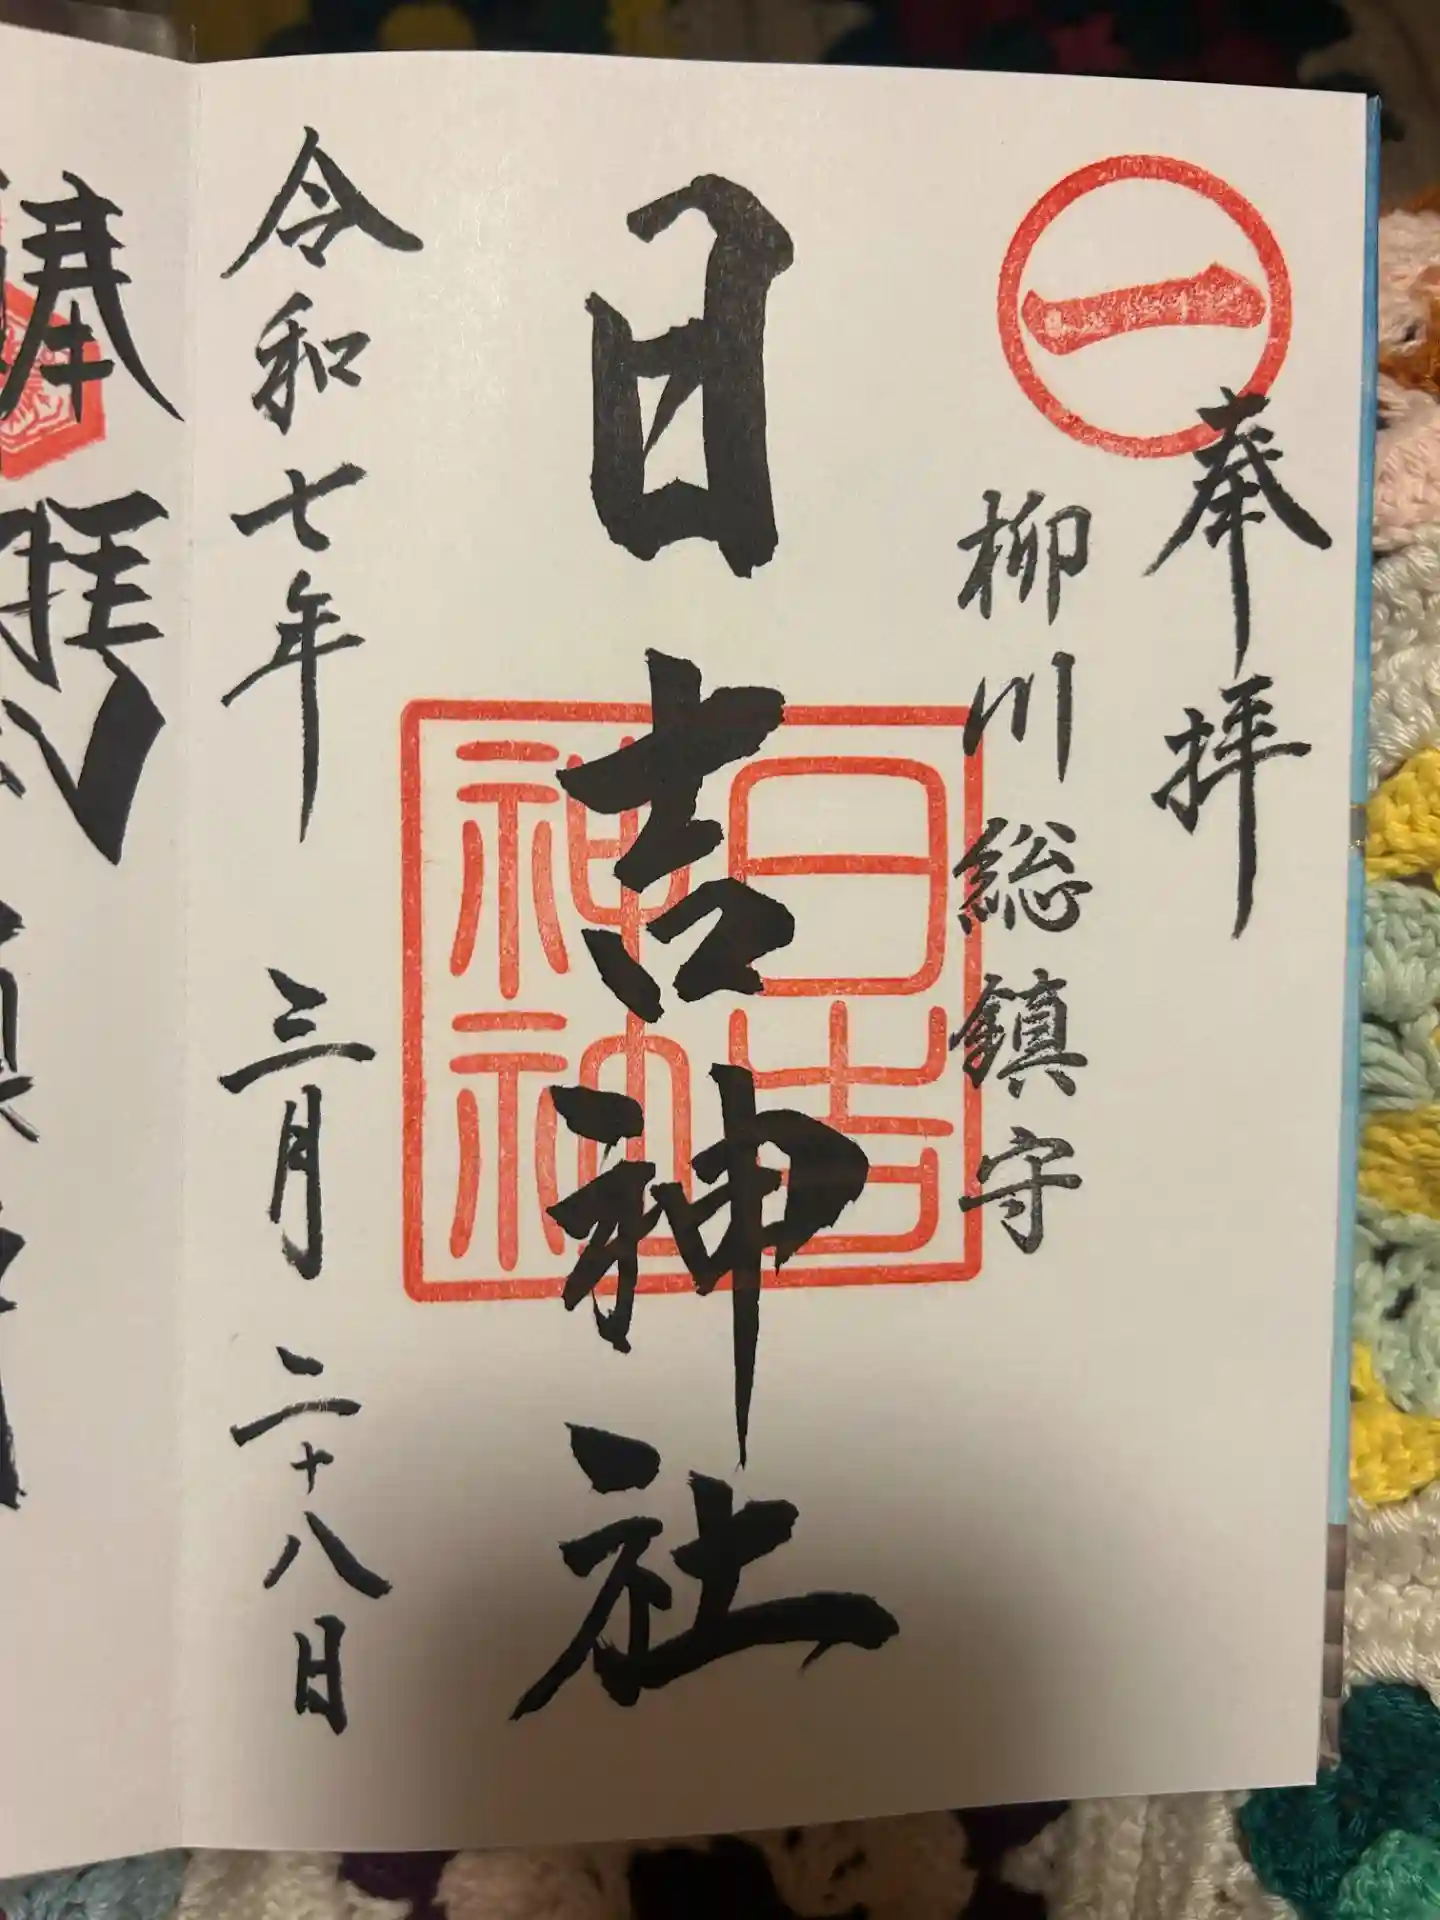 一
奉拝
柳川総鎮守
日吉神社
日吉
神社
令和七年 三月 二十八日
奉拝